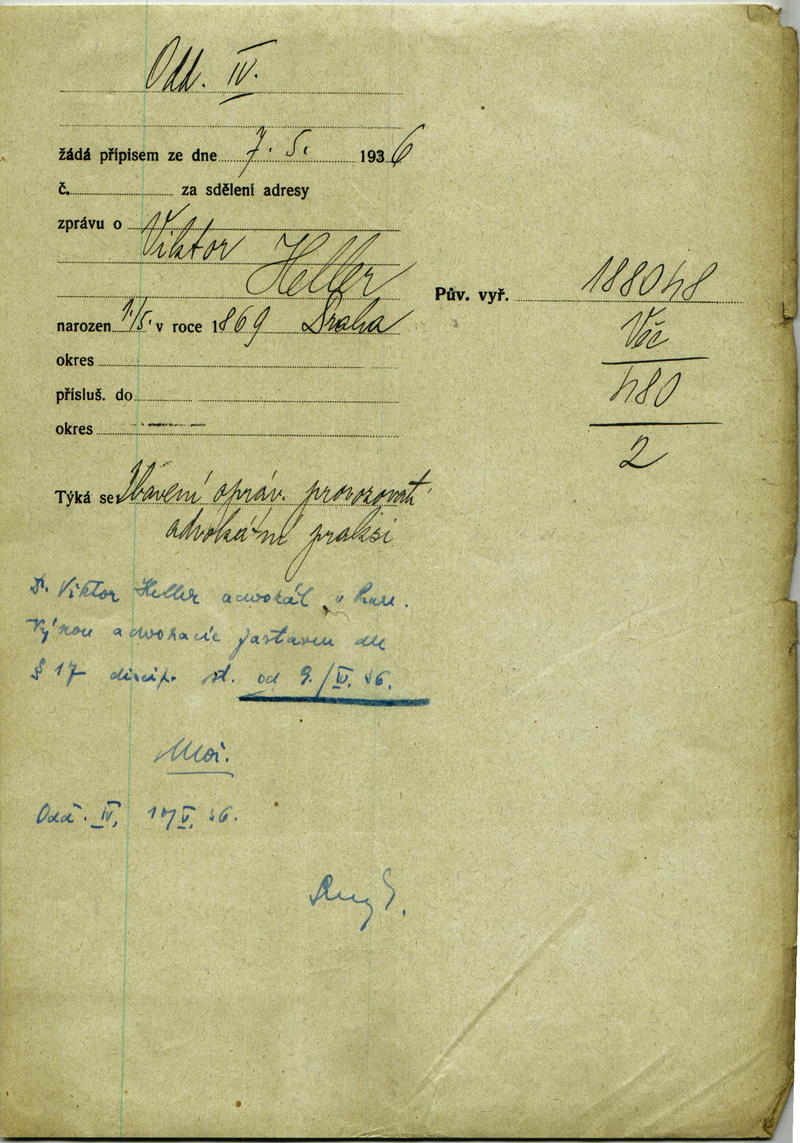 Odd. IV.
žádá přípisem ze dne 7. 5. 1936
č. za sdělení adresy
zprávu o Viktor
Heller
narozen 1./5. v roce 1869 Praha
okres
přísluš. do
okres
Pův. vyř. 188048
Věc
480
2
Týká se: Zbavení opráv. provozovati
advokátní praksi
Dr. Viktor Heller advokát v
advokacie zastaven dle
§ 17 discip. st. od 9./IV. 36.
Odd. IV, 17/V. 36.